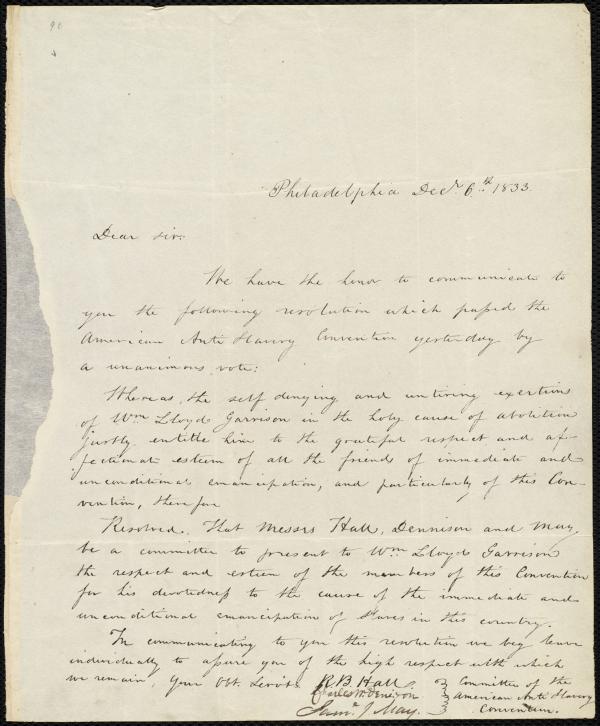 Philadelphia Decr 6th 1833.
Dear sir:
We have the honor to communicate to
you the following resolution which passed the
American Anti Slavery Convention yesterday by
a unanimous vote:
Whereas, the self denying and untiring exertions
of Wm Lloyd Garrison in the holy cause of abolition
justly entitle him to the grateful respect and af-
fectionate esteem of all the friends of immediate and
unconditional emancipation, and particularly of this Con-
vention, therefore
Resolved. That Messrs Hall, Dennison and May,
be a committee to present to Wm Lloyd Garrison
the respect and esteem of the members of this Convention
for his devotedness to the cause of the immediate and
unconditional emancipation of slaves in this country.
In communicating to you this resolution we beg leave
individually to assure you of the high respect with which
we remain, Your Obt. Servts.
R. B. Hall
Charles W. Denison
Saml. J. May.
Committee of the
American Anti Slavery
Convention.